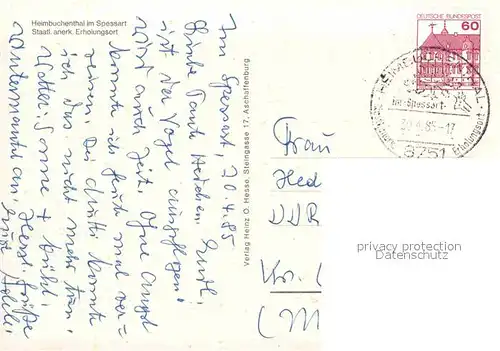 Heimbuchenthal im Spessart
Staatl. anerk. Erholungsort
Im Spessart, 20.4.85
Liebe Tante Hedchen. Endl.
ist der Vogel ausgeflogen!
wird auch Zeit. Ohne Angst
konnte ich heute mal ver=
reisen. Bei Mutti konnte
ich das nicht mehr tun.
Wetter: Sonne + kühl.
Wintermantel an. Herzl. Grüße
Verlag Heinz O. Hesse, Steingasse 17, Aschaffenburg
DEUTSCHE BUNDESPOST
60
im Spessart
-17
8751
Erholungsort
Frau
Hed
DDR
Kr.
(M
privacy protection
Datenschutz